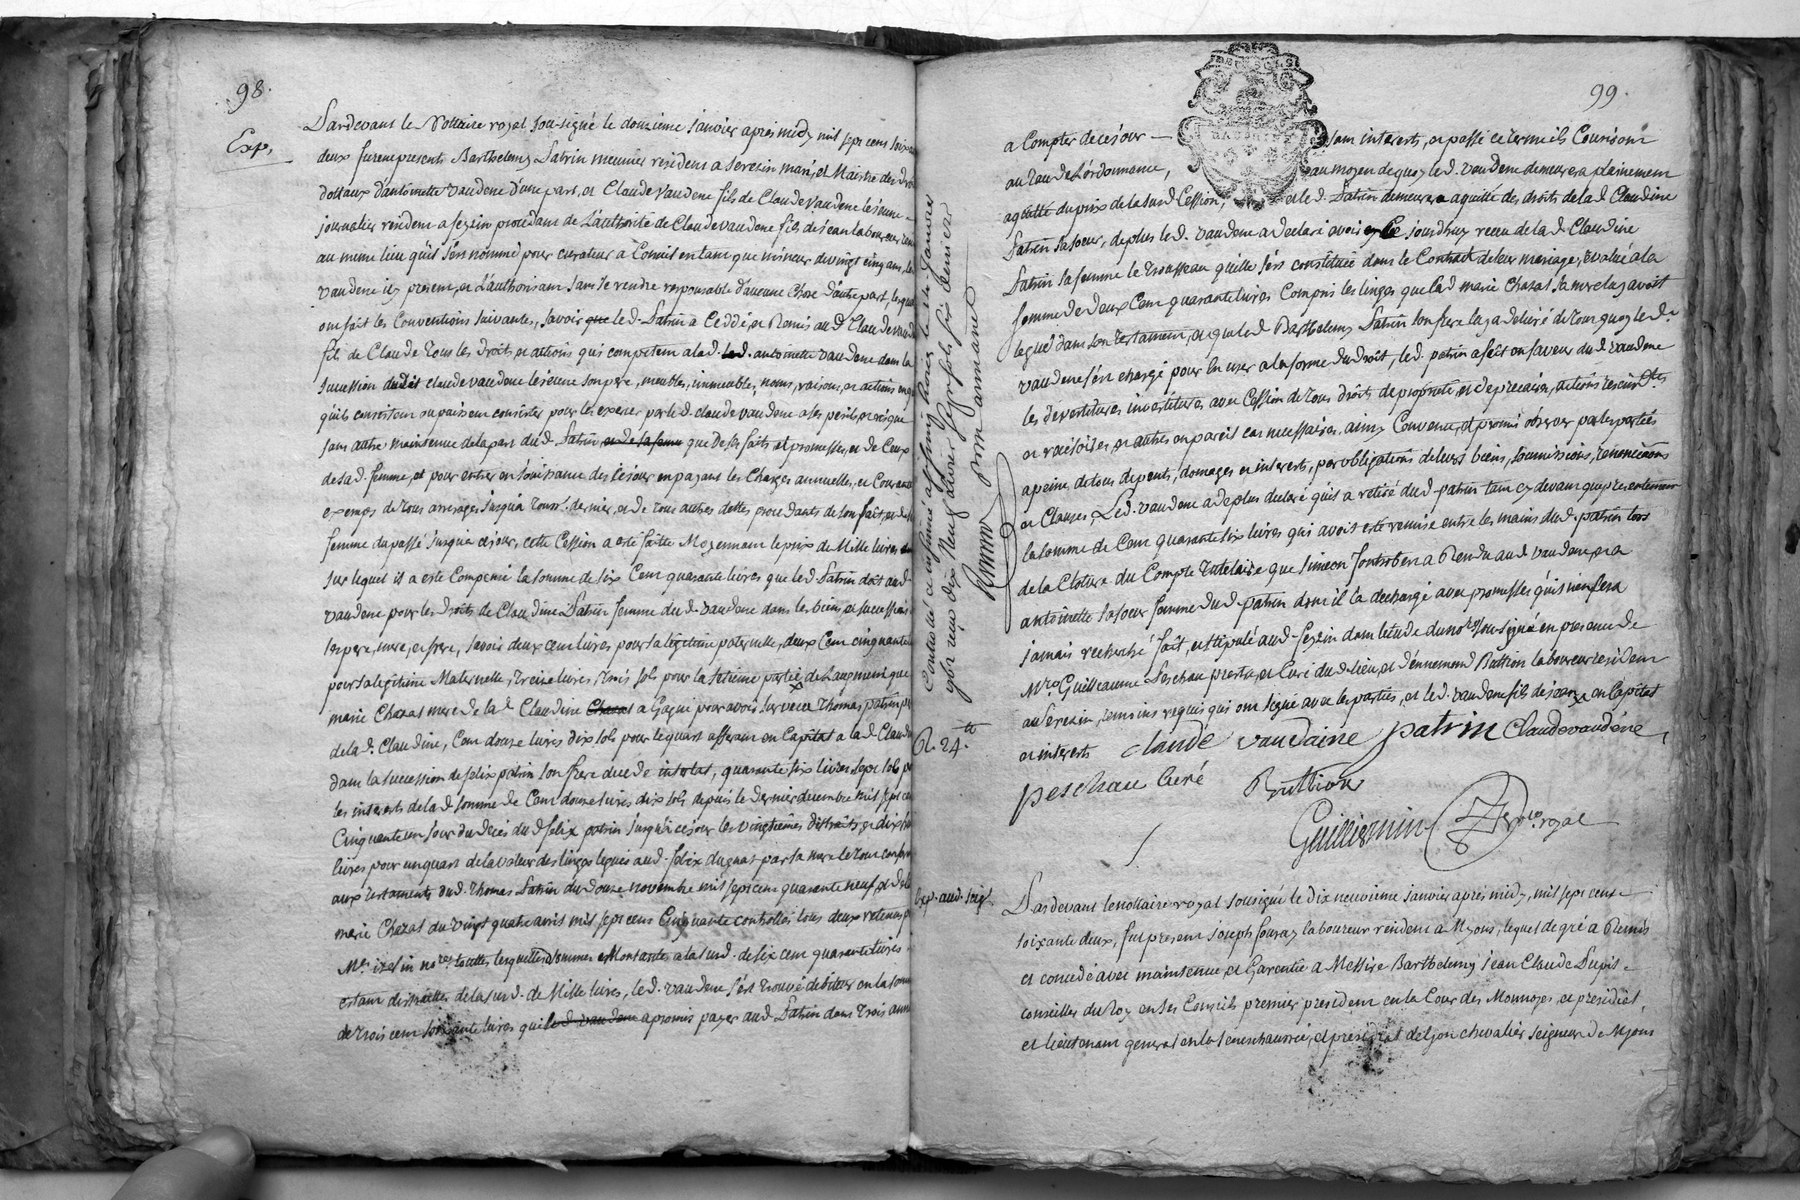 98.
Exp.
Pardevant le Nottaire royal sousigné le douzième Janvier apres midy mil sept cens soix
deux furent presents Barthelemy Patrin meunier resident a Serezin mary et Maistre des droits
dottaux d'antoinette vaudene d'une part, et Claude vaudene fils de Claude vaudene le jeune
journalier resident a Sezin procedant de L'authorité de Claude vaudene fils de jean laboureur
au meme lieu qu'il s'est nommé pour curateur a Conseil en tant que mineur de vingt cinq ans, led.
vaudene icy present, et L'authorisant sans se rendre responsable d'aucune Chose d'autre part, lesquels
ont fait les Conventions suivantes, scavoir que led. Patrin a Ceddé, et Remis aud. Claude vaudene
fils de Claude tous les droits et actions qui competent a lad. led. antoinette vaudene dans la
succession dudit claude vaudene le jeune son pere, meubles, immeubles, noms, raisons, et actions en
quils consistent ou puissent consister pour les exercer par led. claude vaudene a ses perils, et risque
sans autre maintenue de la part dud. Patrin et de sa femme que de ses faits et promesses, et de Ceux
de sad. femme, et pour entrer en Jouissance des Cejour en payant les Charges annuelles, et Courantes
exemps de tous arrerages jusqu'a dernier, et de tous autres dettes procedants de son fait, et de
femme du passé Jusqua cejour, cette Cession a eté faitte Moyennant le prix de Mille livres
sur lequel il a este Compensé la somme de six Cent quarante livres que led. Patrin doit aud.
vaudene pour les droits de Claudine Patrin femme dud. vaudene dans les biens, et succession
pere, mere, et frere, scavoir deux cent livres pour sa legitime paternelle, deux Cent cinquante
pour sa legitime Maternelle, treize livres trois sols pour la setième partie de Laugment que
marie Chazat mere de lad. Claudine Chazat a Gagné pour avoir survecu Thomas patrin
de lad. Claudine, Cent douze livres dix sols pour le quart afferant en Capital a lad. Claudine
dans la succession de felix patrin son frere decedé intestat, quarante six livres sept sols
les interests de lad. somme de Cent douze livres dix sols depuis le dernier decembre mil sept cent
Cinquante un jour du deces dud. felix patrin jusqu'a ce jour les vingtiemes distraits, et dix huit
livres pour un quart de la valeur des linges legués aud. felix par sa mere le tout conformement
aux testaments dud. Thomas Patrin du douze novembre mil sept cent quarante neuf, et de lad.
marie Chazat du vingt quatre avril mil sept cens Cinquante controllés tous deux retenus
Mes. no.res touttes lesquelles sommes Montantes a la susd. de six cent quarante livres
estant distraittes de la susd. de Mille livres, led. vaudene s'est trouvé debiteur en la somme
de trois cent soixante livres qui led. vaudene a promis payer aud. Patrin dans trois années
99.
a Compter de cejour sans interests, et passé ce terme ils Courront
au taux de L'ordonnance, au moyen de quoy led. vaudene demeure a plainement
aquitté du prix de la susd. Cession, et led. Patrin demeure aquitté des droits de lad. Claudine
Patrin sa soeur, de plus led. vaudene a declaré avoir ce jourdhuy receu de lad. Claudine
Patrin sa femme le trousseau quelle s'est constituée dans le Contrat de leur mariage, evalué a la
somme de deux Cent quarante livres Compris les linges que lad. marie Chazat sa mere luy avoit
legués dans son testament, et que led. Barthelemy Patrin son frere luy a delivré de tout quoy led.
vaudene s'en charge pour en user a la forme du droit, led. patrin a fait en faveur dud. vaudene
les devestitures investitures avec Cession de tous droits de proprieté, et de precaire, actions rescindantes
et rescisoires, et autres en pareil cas necessaires, ainsy Convenu, et promis observer par les parties
a peine de tous depents, domages et interests, par obligations de leurs biens, soumissions, renonciations
et Clauses, Led. vaudene a de plus declaré qu'il a retiré dud. patrin tant cy devant que presentement
la somme de Cent quarante six livres qui avoit esté remise entre les mains dud. patrin lors
de la Cloture du Compte tutelaire que Simeon a Rendu aud. vaudene, et a
antoinette sa soeur femme dud. patrin dont il la decharge avec promesses qu'il n'en sera
jamais recherché fait, et stipulé aud. Sezin dans letude du no.re sousigné en presence de
M.re Guilleaume Peschau prestre, et Curé dud. lieu, et d'ennemond Buttion laboureur resident
au Serezin, temoins requis qui ont signé avec les parties, et led. vaudene fils de jean en Capital
et interests
claude vaudaine patrin Claudevaudéne
peschau curé Buttion
Guilliermin no.re royal
Controllé a
reçu dix neuf livres
R. 24.lt
Exp. aud. seig.
Pardevant le nottaire royal sousigné le dix neuvième janvier apres midy, mil sept cens
soixante deux, fut present joseph fouray laboureur resident a Myons, lequel de gré a Remis
et concedé avec maintenue, et Garentie a Messire Barthelemy jean Claude Dupis
conseiller du Roy en ses Conseils premier president en la Cour des Monnoyes, et presidial,
et lieutenant general en la senechaussée, et presidial de Lyon chevalier seigneur de Myons